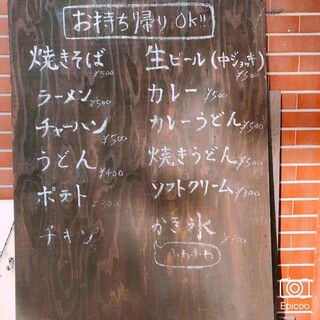 お持ち帰りOK!!
焼きそば ¥500
ラーメン ¥500
チャーハン ¥500
うどん ¥400
ポテト ¥300
チキン
生ビール(中ジョッキ) ¥500
カレー ¥500
カレーうどん ¥500
焼きうどん ¥500
ソフトクリーム ¥300
かき氷 ¥300
ふわふわ
Epicoo